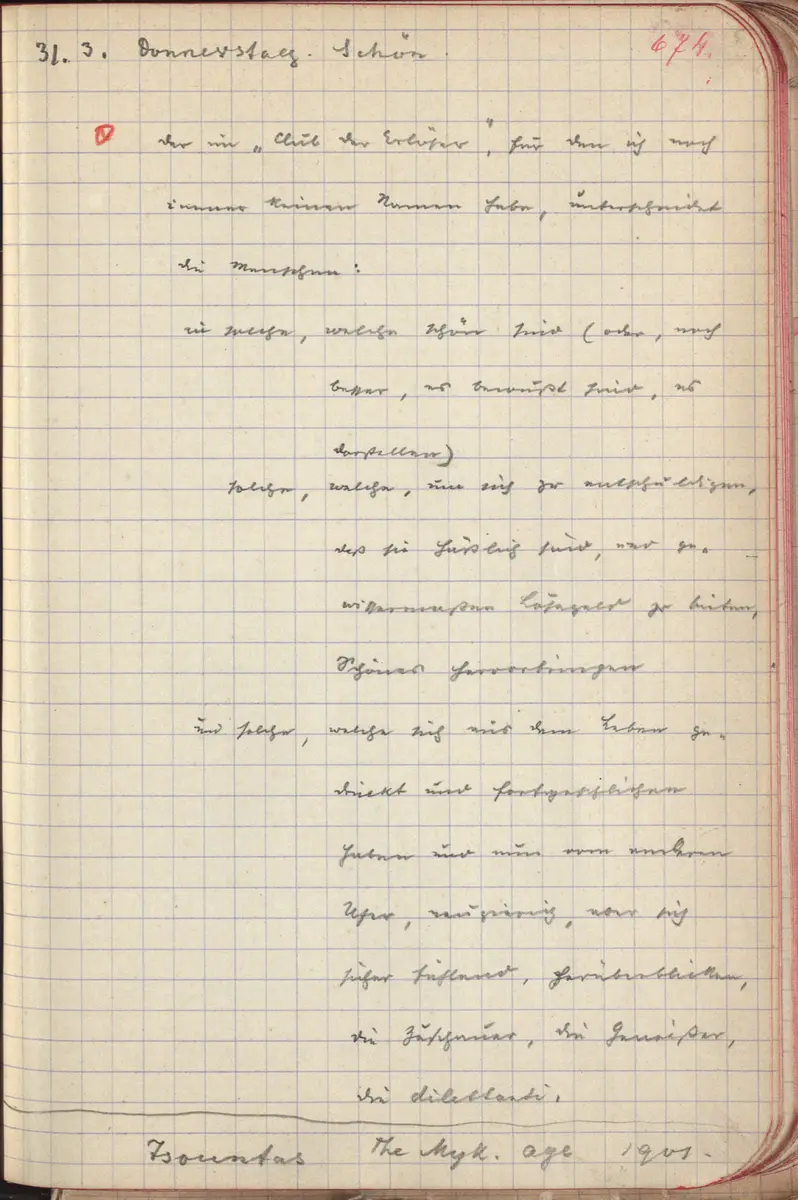 31. 3. Donnerstag. Schön. 674.
der im „Club der Erlöser“, für den ich noch
immer keinen Namen habe, unterscheidet
die Menschen:
in solche, welche schön sind (oder, noch
besser, es bewußt sind, es
darstellen)
solche, welche, um sich zu entschuldigen,
daß sie häßlich sind, und ge-
wissermaßen Lösegeld zu bieten,
Schönes hervorbringen
und solche, welche sich aus dem Leben ge-
drückt und fortgeschlichen
haben und nun vom anderen
Ufer, neugierig, aber sich
sicher fühlend, herüberblicken,
die Zuschauer, die Genießer,
die dilettanti.
Tsountas The Myk. age 1901.